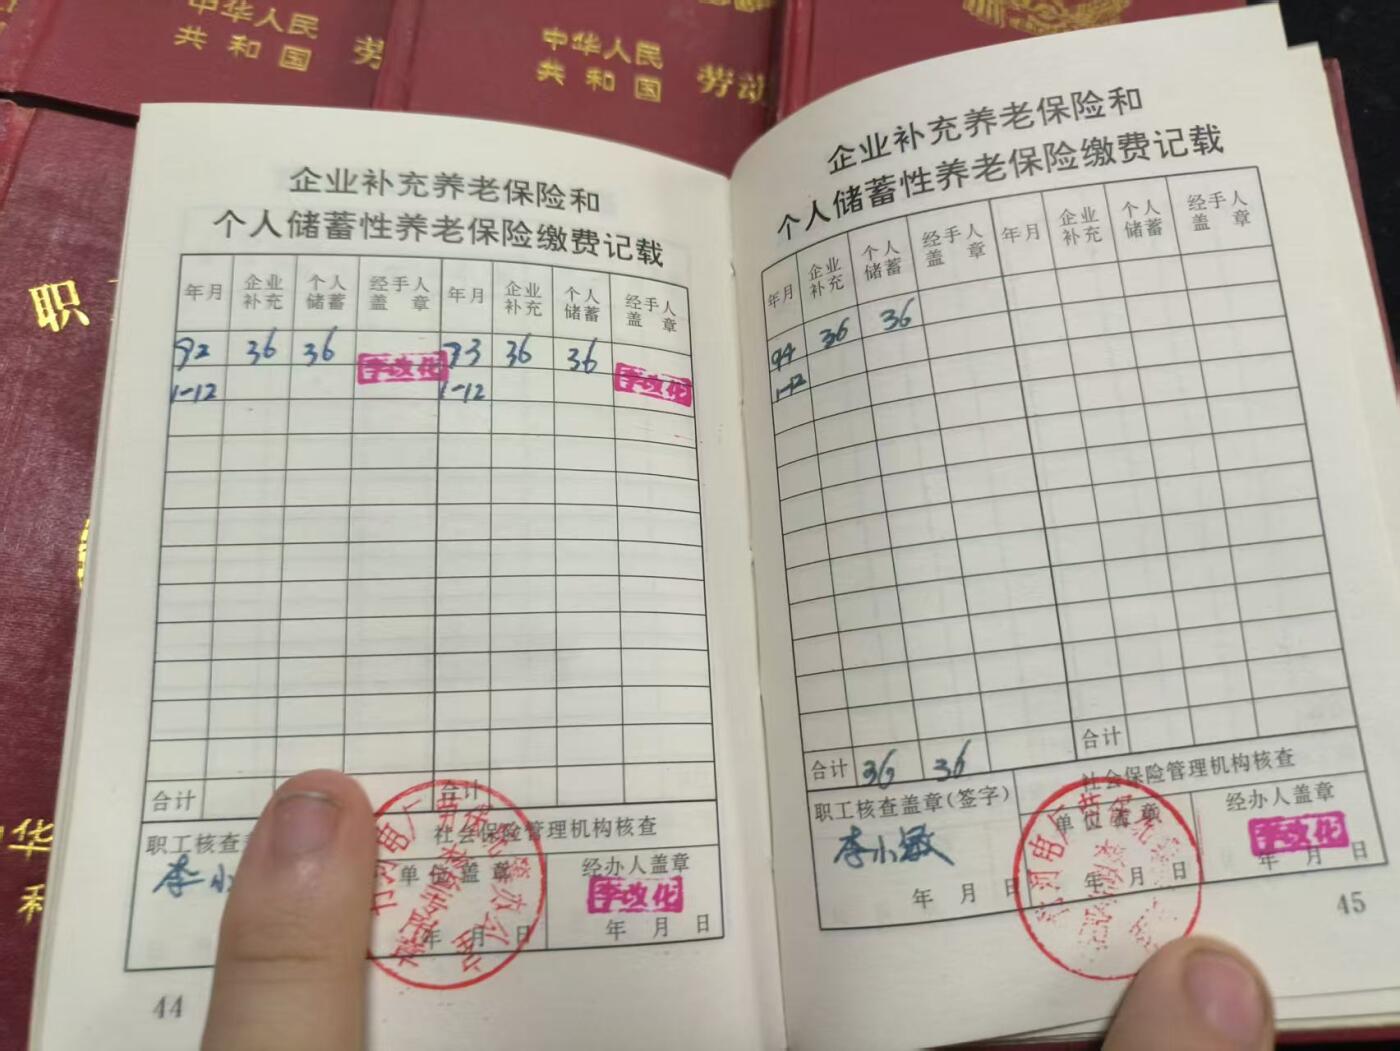 中华人民
共和国 劳
中华人民
共和国 劳动
职
中华
和
企业补充养老保险和
个人储蓄性养老保险缴费记载
年月 企业补充 个人储蓄 经手人盖章 年月 企业补充 个人储蓄 经手人盖章
92 36 36 李改化 93 36 36 李改化
1-12 1-12
合计 合计
职工核查盖 社会保险管理机构核查
李小 单位盖章 经办人盖章
李改化
年月日 年月日
44
企业补充养老保险和
个人储蓄性养老保险缴费记载
年月 企业补充 个人储蓄 经手人盖章 年月 企业补充 个人储蓄 经手人盖章
94 36 36
1-12
合计 36 36 合计
职工核查盖章(签字) 社会保险管理机构核查
李小敏 单位盖章 经办人盖章
李改化
年月日 年月日 年月日
45